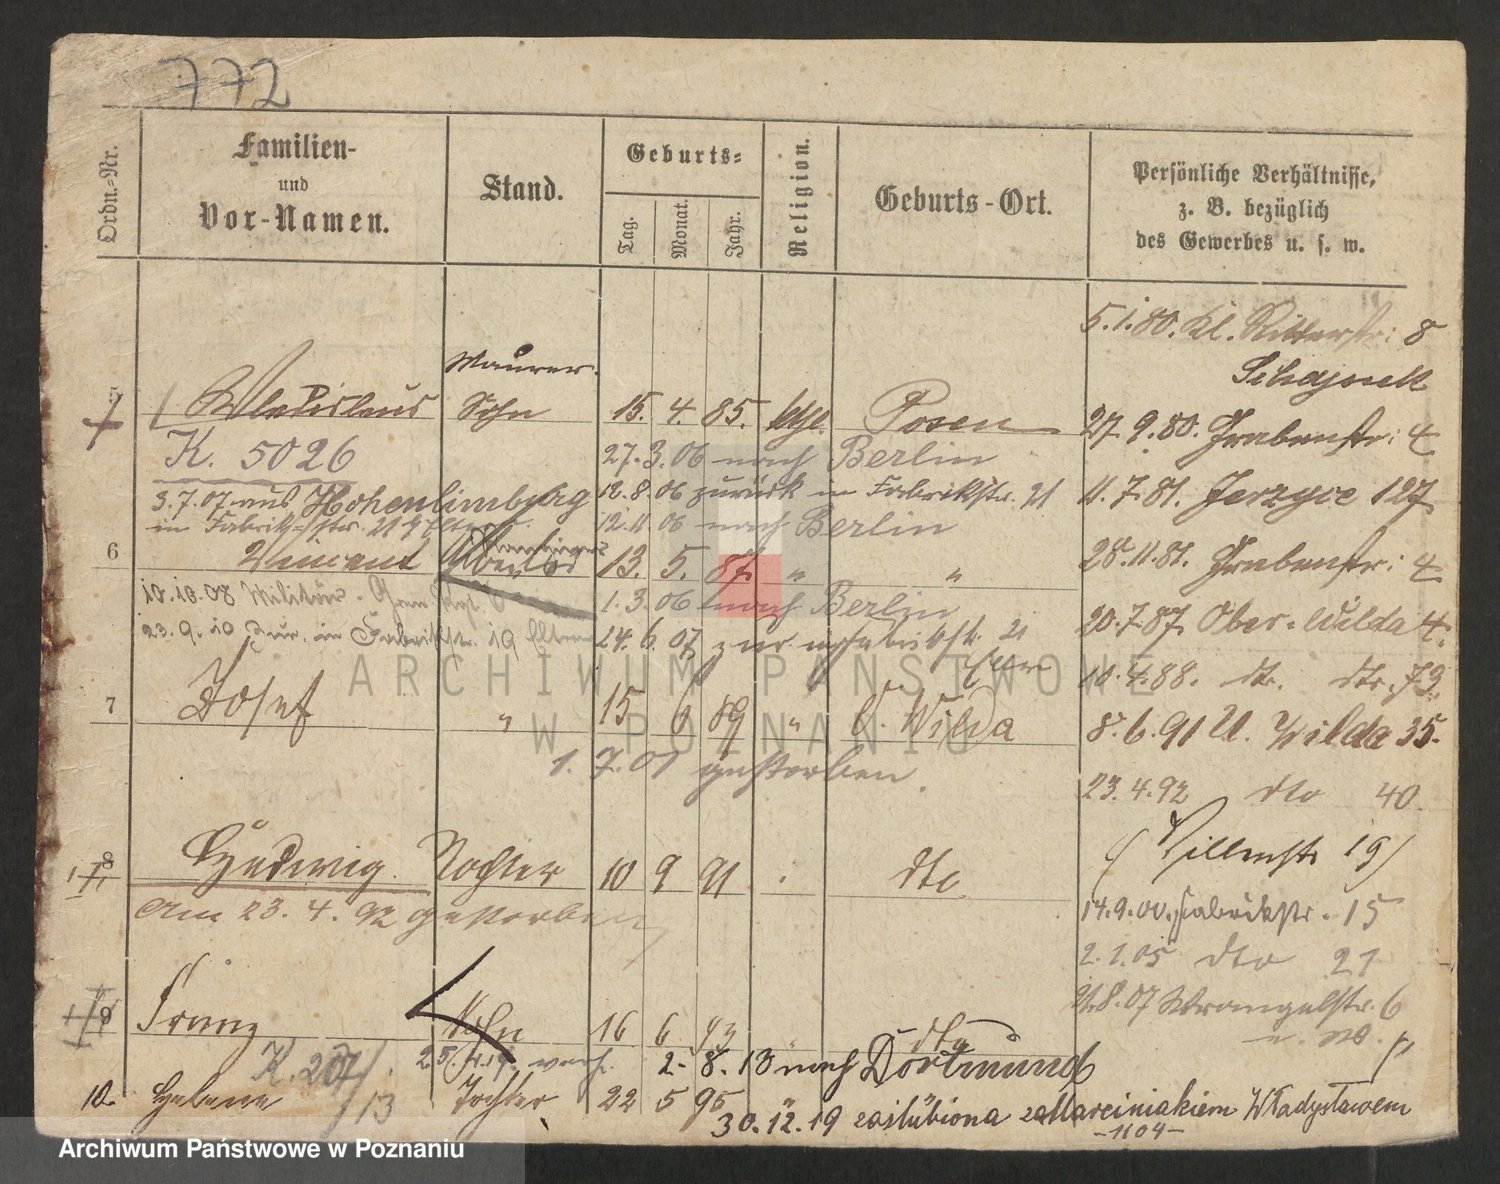 772
Ordn.-Nr.
Familien-
und
Vor-Namen.
Stand.
Geburts-
Tag.
Monat.
Jahr.
Religion.
Geburts-Ort.
Persönliche Verhältnisse,
z. B. bezüglich
des Gewerbes u. s. w.
5.1.80. Kl. Ritterstr: 8
Maurer.
5 Wladislaus Sohn 15. 4. 85. kth. Posen
27.9.80. Grabenstr: 4
K. 5026
27.3.06 nach Berlin
3.7.07 aus Hohenlimburg
12.8.06 zurück in Fabrikstr. 21
11.7.81. Jerzyce 127
in Fabrikstr. 21
12.11.06 nach Berlin
6 Vincent 13. 5. 87. " "
28.11.81. Grabenstr: 4
10.10.08 Militär
1.3.06 nach Berlin
20.7.87. Ober-Wilda 4.
23.9.10 zur. in Fabrikstr. 19 Eltern
24.6.07 zur. Fabrikstr. 21
Eltern
10.4.88. dto. dto. 73.
7 Josef " 15 6 89 " O. Wilda
8.6.91 U. Wilda 35.
1.7.01 gestorben.
23.4.92 dto 40.
8 Hedwig. Tochter 10 9 91 dto
19)
am 23.4.92 gestorben
14.9.00. Fabrikstr. 15
2.1.05 dto 21
9 Franz Sohn 16 6 93 dto
21.8.07 Wrangelstr. 6
K. 207/13
25.4.19.
2.8.13 nach Dortmund
10. Helene Tochter 22 5 95
30.12.19 zaślubiona z Marciniakiem Władysławem
-1104-
ARCHIWUM PAŃSTWOWE
W POZNANIU
Archiwum Państwowe w Poznaniu